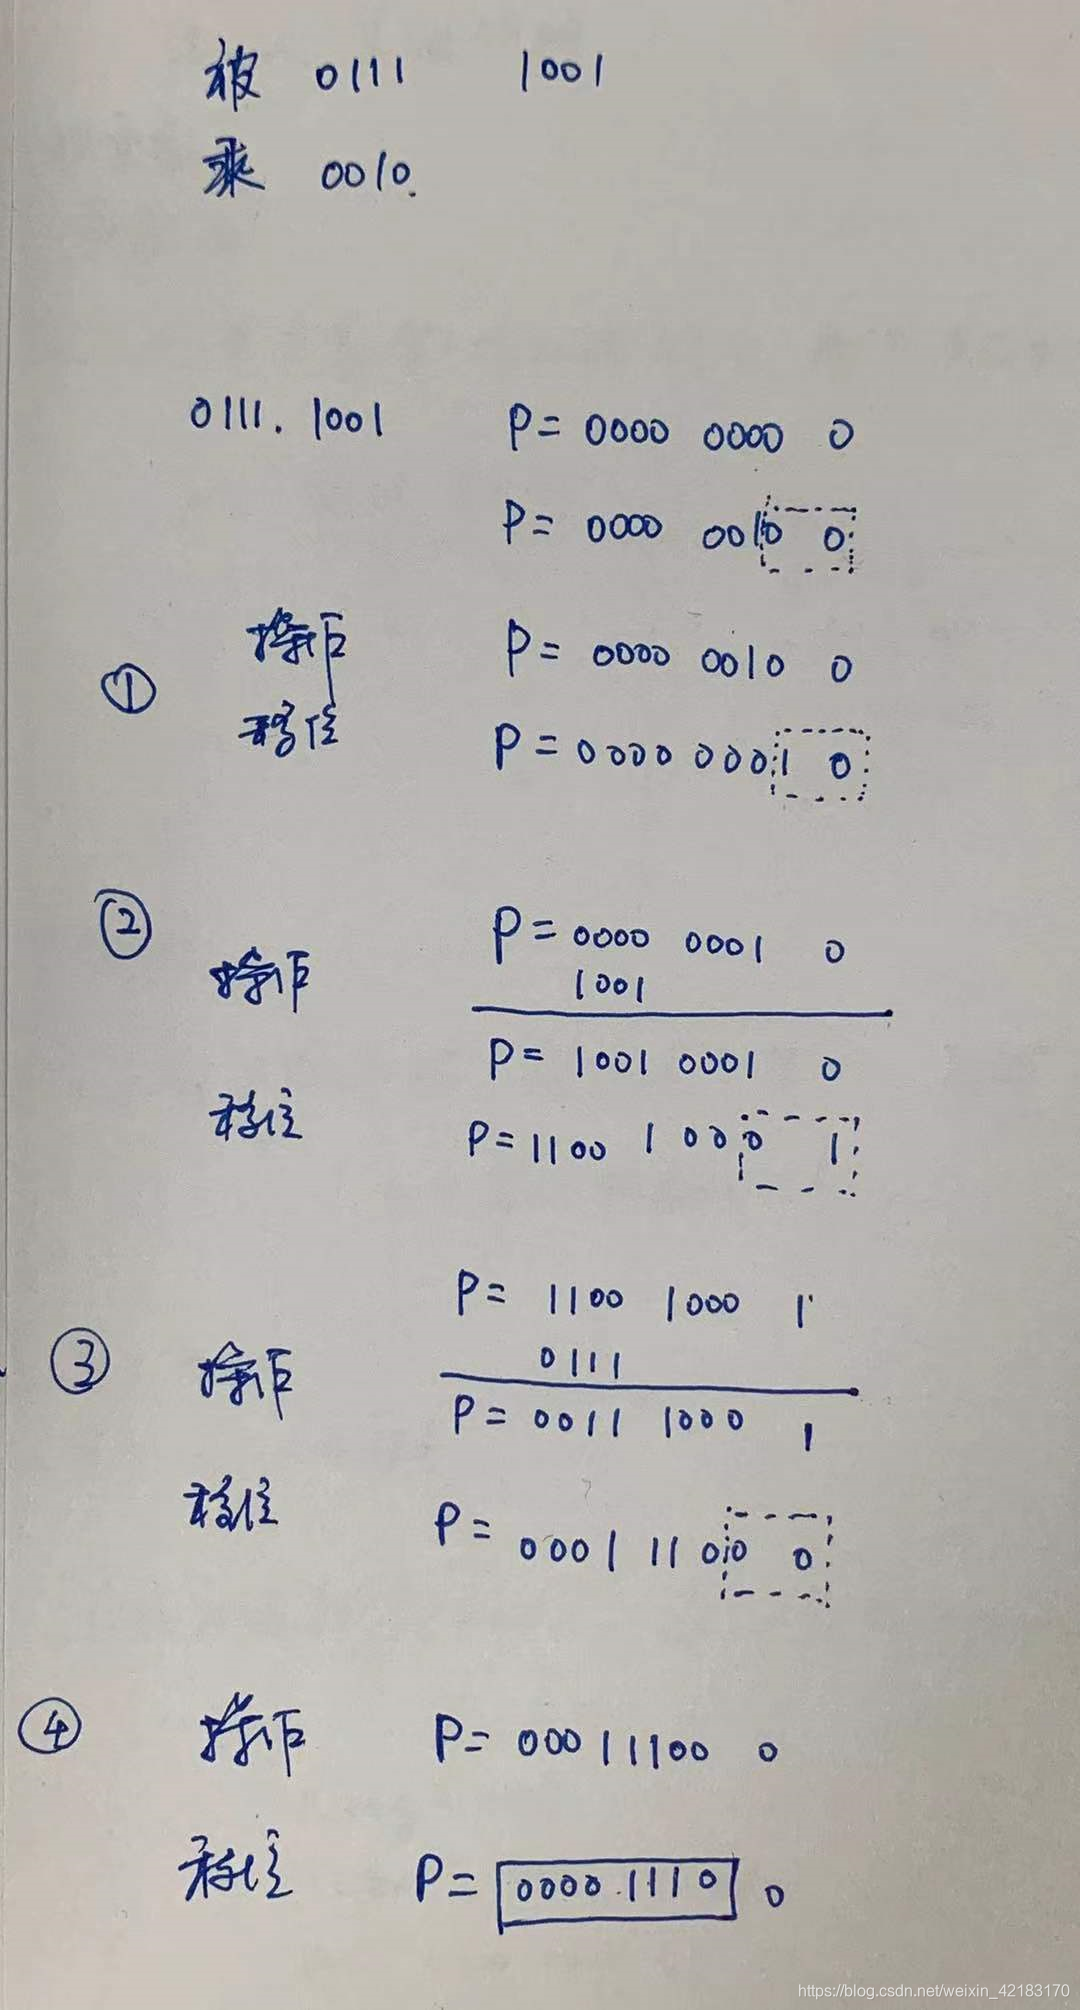 被 0111 1001
乘 0010.
0111. 1001 P= 0000 0000 0
P= 0000 0010 0
操作 P= 0000 0010 0
①
移位 P= 0000 0001 0
② P= 0000 0001 0
操作 1001
P= 1001 0001 0
移位 P= 1100 1000 1
P= 1100 1000 1
③ 操作 0111
P= 0011 1000 1
移位 P= 0001 1100 0
④ 操作 P= 00011100 0
移位 P= 0000 1110 0
https://blog.csdn.net/weixin_42183170